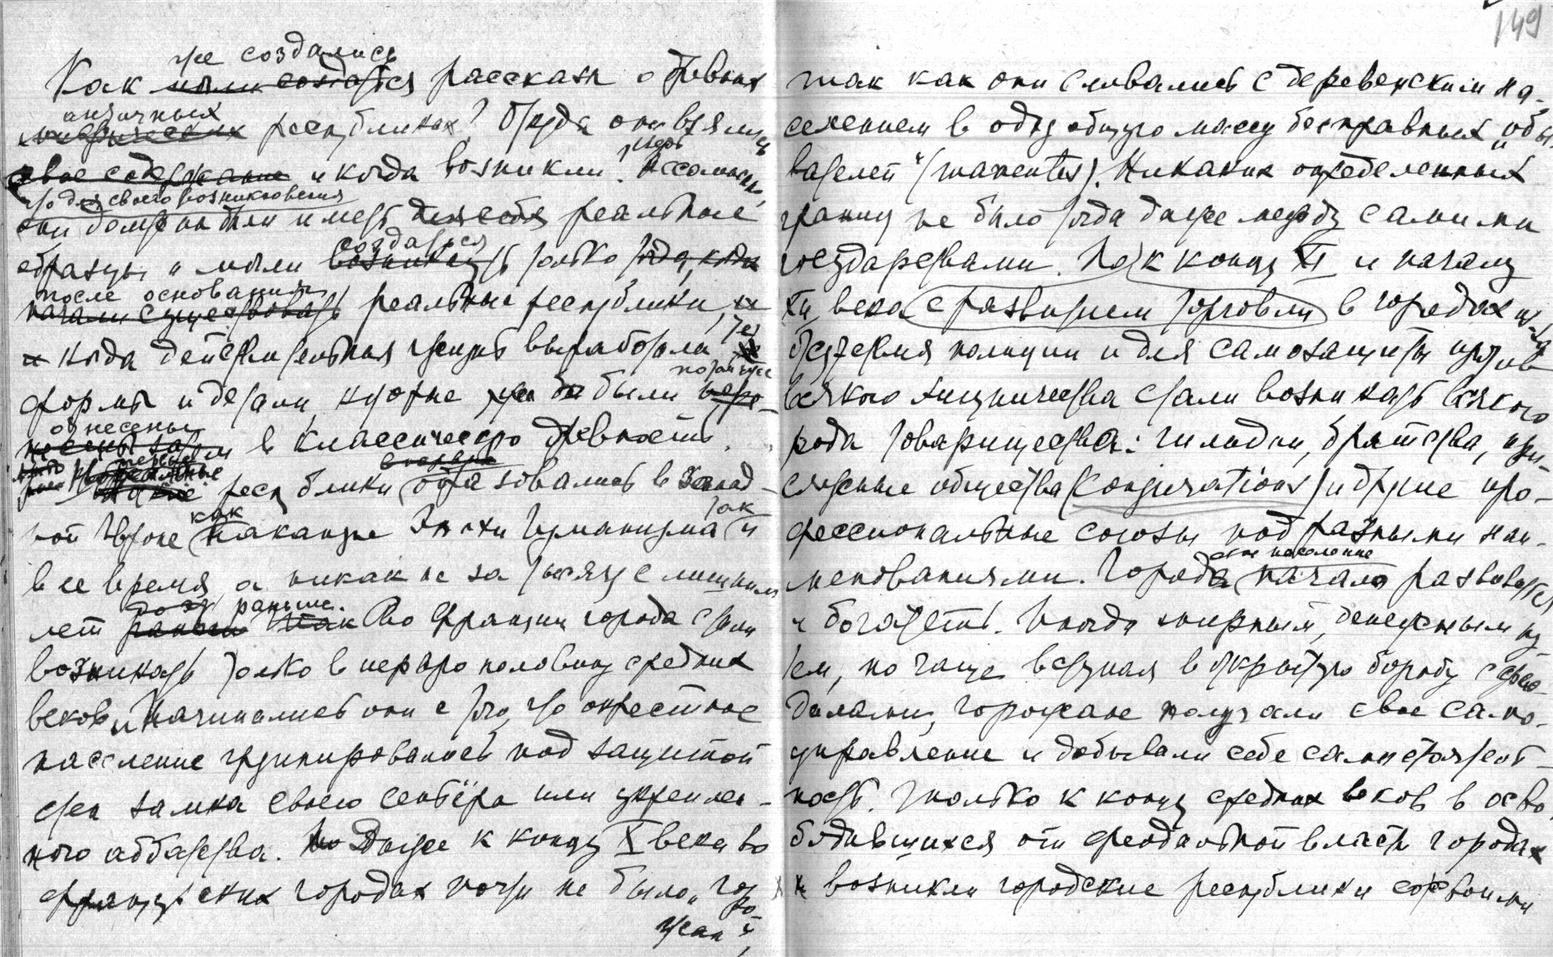 149
же создались
Как могли создаться рассказы о древних
античных
республиках? Откуда они взяли
идеи
свое содержание и когда возникли?
что для своего возникновения
они должны были иметь для себя реальные
создаться
образцы и могли возникнуть только тогда, когда
после основания
начали существовать реальные республики,
и когда действительная жизнь выработала те
позднее
формы и детали, которые уже были
отнесены
в классическую древность.
республики образовались в Запад-
как так
ной Европе накануне Эпохи Гуманизма и
в ее время, а никак не за тысячу с лишним
лет раньше. Во Франции города стали
возникать только в первую половину средних
веков. Начинались они с того, что окрестное
население группировалось под защитой
стен замка своего сеньёра или укреплен-
ного аббатства. Даже к концу X века во
французских городах почти не было „горо-
жан“,
так как они сливались с деревенским на-
селением в одну общую массу бесправных „обы-
вателей“ (manentes). Никаких определенных
границ не было тогда даже между самими
государствами. Но к концу XI и началу
XII века с развитием торговли в городах из-за
отсутствия полиции и для самозащиты против
всякого хищничества стали возникать всякого
рода товарищества: гильдии, братства, при-
сяжные общества (conjurations) и другие про-
фессиональные союзы под разными наи-
ное население
менованиями. Города начало развиваться
и богатеть. Иногда мирным, денежным пу-
тем, но чаще вступая в открытую борьбу с фео-
далами, горожане получали свое само-
управление и добывали себе самостоятель-
ность. Только к концу средних веков в осво-
бодившихся от феодальной власти городах
и возникли городские республики со своими